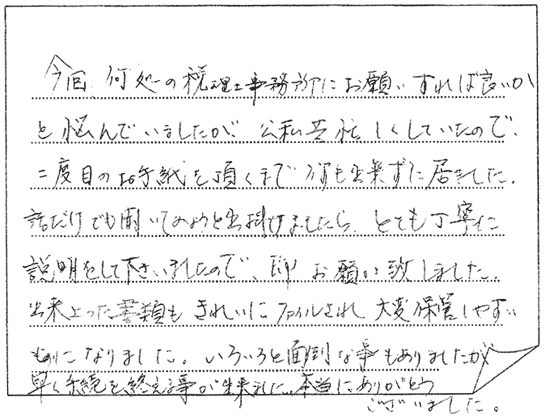 今回、何処の税理士事務所にお願いすれば良いか
と悩んでいましたが、公私共忙しくしていたので、
二度目のお手紙を頂くまで何も出来ずに居ました。
話だけでも聞いてみようと出掛けましたら、とても丁寧に
説明をして下さいましたので、即お願い致しました。
出来上った書類もきれいにファイルされ大変保管しやすい
ものになりました。いろいろと面倒な事もありましたが
早く手続を終える事が出来ました。本当にありがとう
ございました。